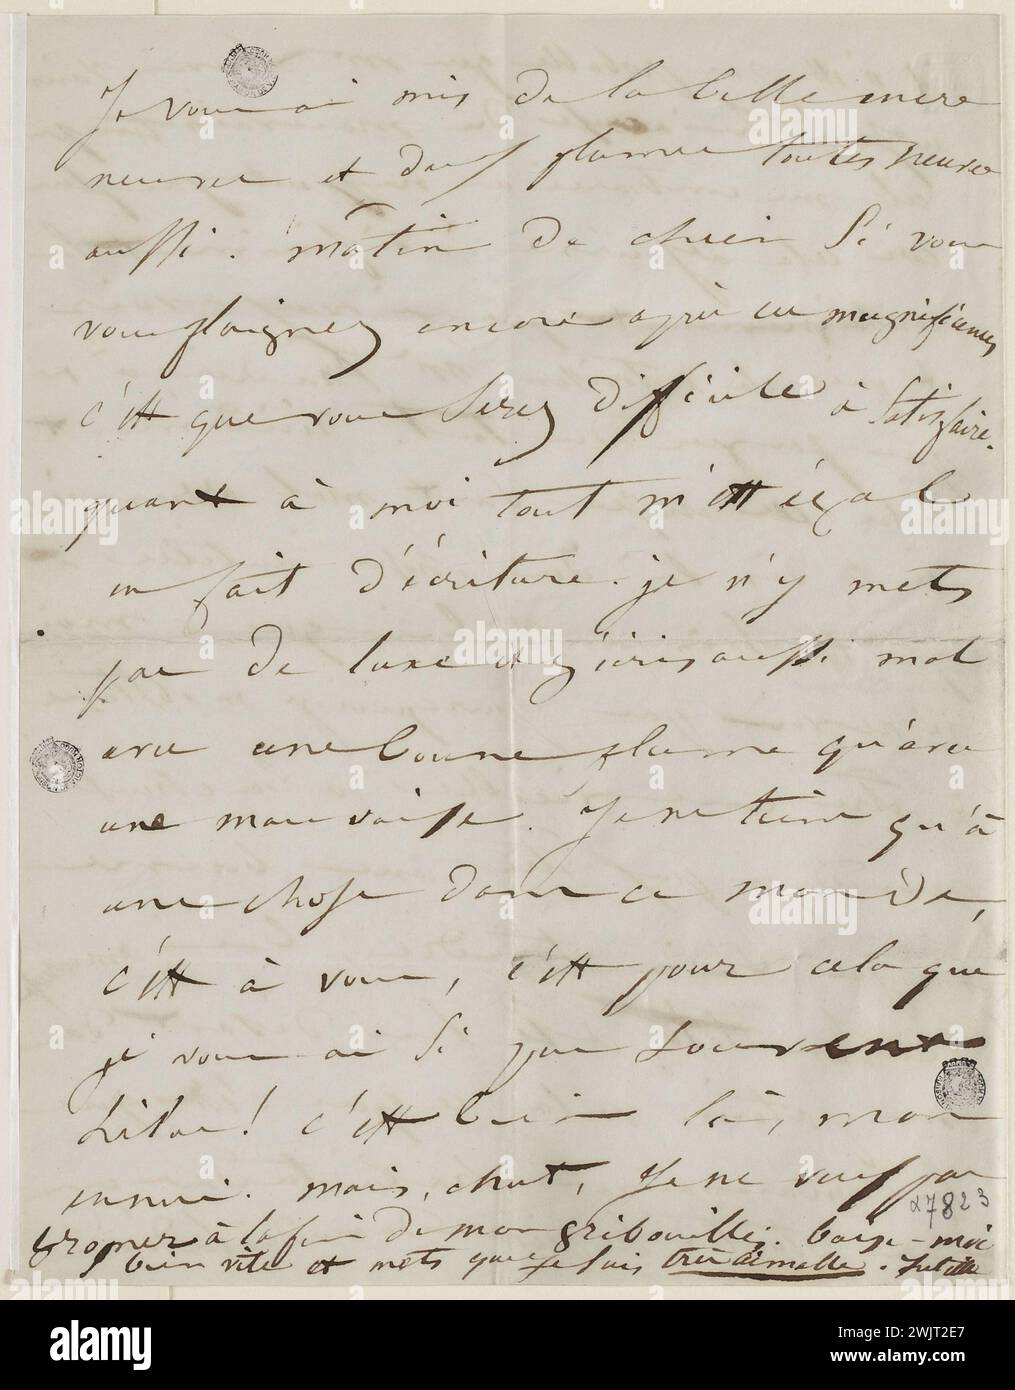 Je vous ai mis de la belle encre
neuve et deux plumes toutes neuves
aussi. mâtin de chien si vous
vous plaignez encore après ces magnificences
c'est que vous serez difficile à satisfaire.
quant à moi tout m'est égal
en fait d'écriture. je n'y mets
pas de luxe et j'écris aussi mal
avec une bonne plume qu'avec
une mauvaise. Je ne tiens qu'à
une chose dans ce monde,
c'est à vous, c'est pour cela que
je vous ai si peu souvent
hélas! c'est bien là, mon
ennui. mais, chut, Je ne veux pas
grogner à la fin de mon gribouillis. baise-moi
bien vite et mets que je suis très aimable. Juliette
27823
alamy
Image ID: 2WJT2E7
www.alamy.com